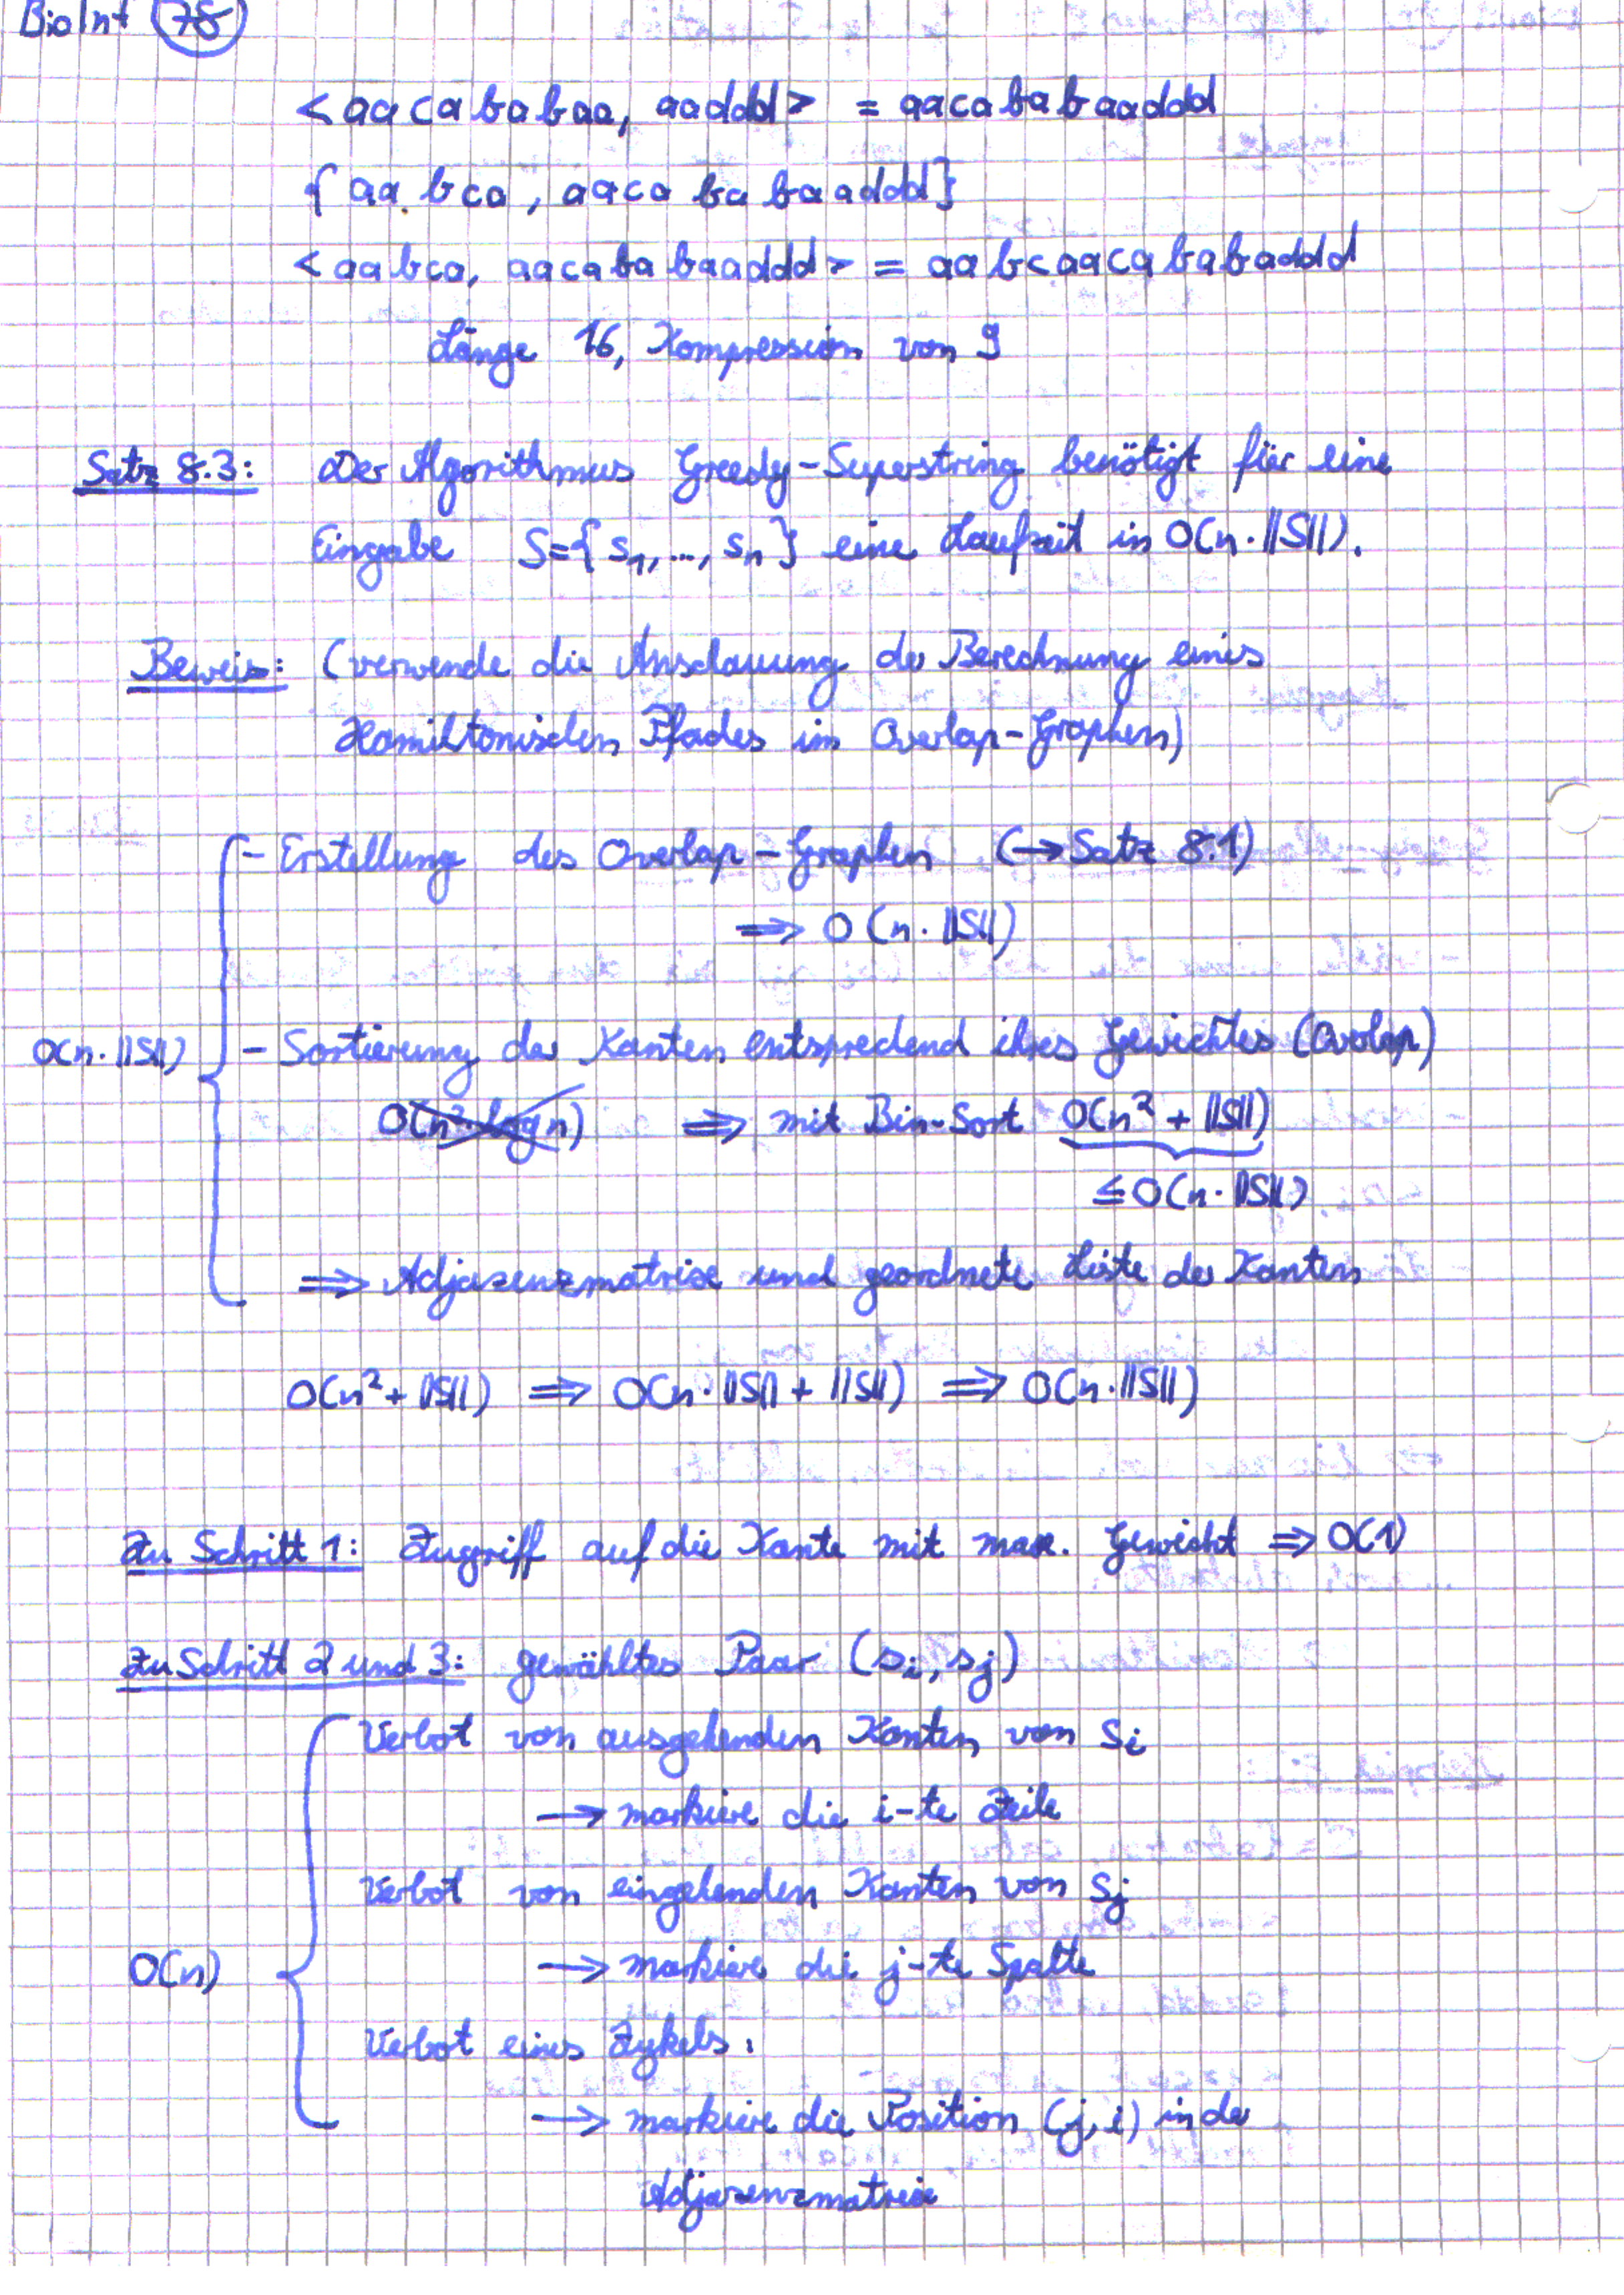 BioInf 78
<aacababaa, aaddd> = aacababaaddd
{aabca, aacababaaddd}
<aabca, aacababaaddd> = aabcaacababaddd
Länge 16, Kompression von 9
Satz 8.3: Der Algorithmus Greedy-Superstring benötigt für eine
Eingabe S={s₁,..., sₙ} eine Laufzeit in O(n·||S||).
Beweis: (verwende die Anschauung der Berechnung eines
Hamiltonischen Pfades im Overlap-Graphen)
- Erstellung des Overlap-Graphen (→ Satz 8.1)
⇒ O(n·||S||)
O(n·||S||) - Sortierung der Kanten entsprechend ihres Gewichtes (Overlap)
O(n² log n) ⇒ mit Bin-Sort O(n² + ||S||)
≤ O(n·||S||)
⇒ Adjazenzmatrixe und geordnete Liste der Kanten
O(n² + ||S||) ⇒ O(n·||S|| + ||S||) ⇒ O(n·||S||)
Zu Schritt 1: Zugriff auf die Kante mit max. Gewicht ⇒ O(1)
Zu Schritt 2 und 3: gewähltes Paar (sᵢ, sⱼ)
Verbot von ausgehenden Kanten von sᵢ
→ markiere die i-te Zeile
Verbot von eingehenden Kanten von sⱼ
O(n) → markiere die j-te Spalte
Verbot eines Zykels:
→ markiere die Position (j,i) in der
Adjazenzmatrix